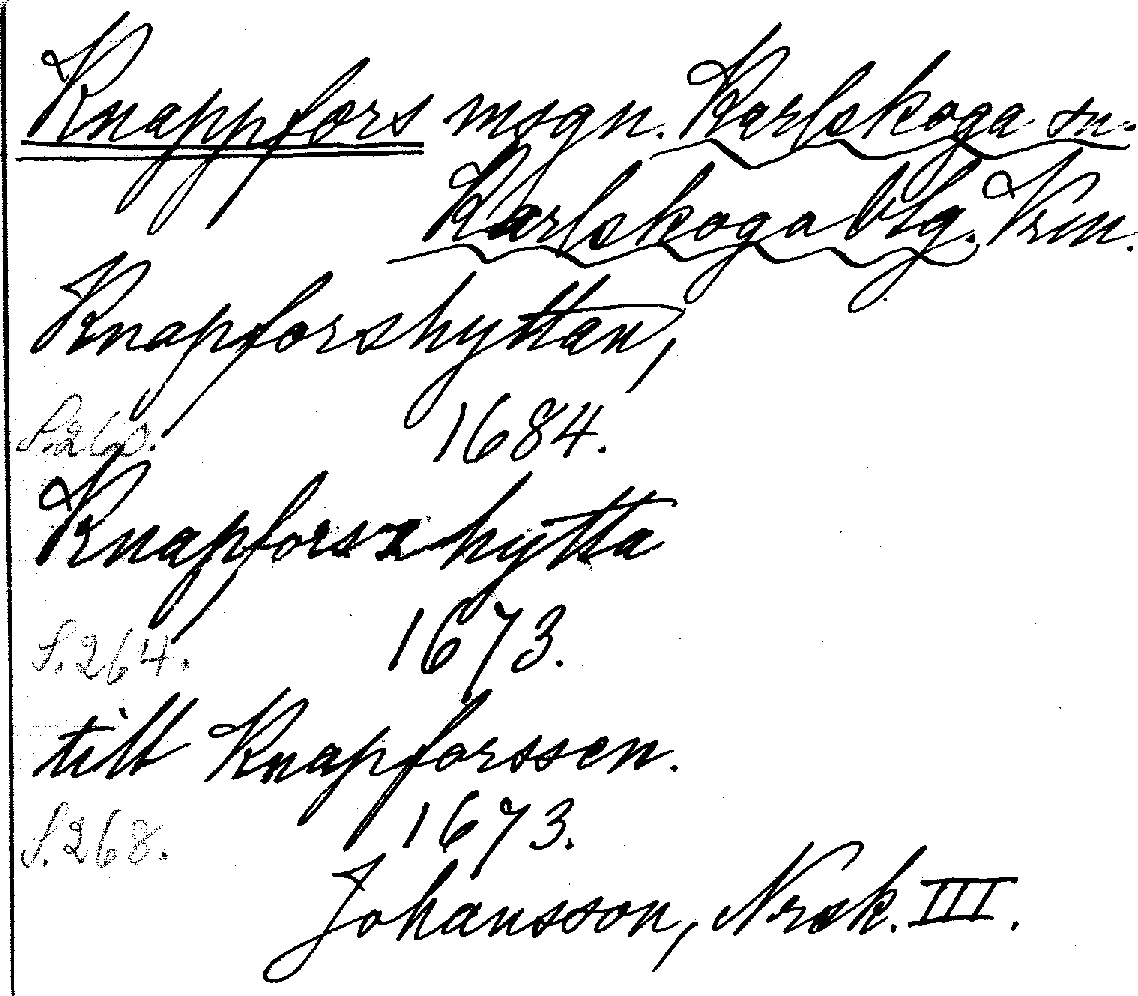 Knappfors msgn. Karlskoga sn.
Karlskoga blg. Vrm.
Knapforshyttan,
1684.
Knapforszhytta
S. 264. 1673.
till Knapforssen.
S. 268. 1673.
Johansson, Nrsk. III.